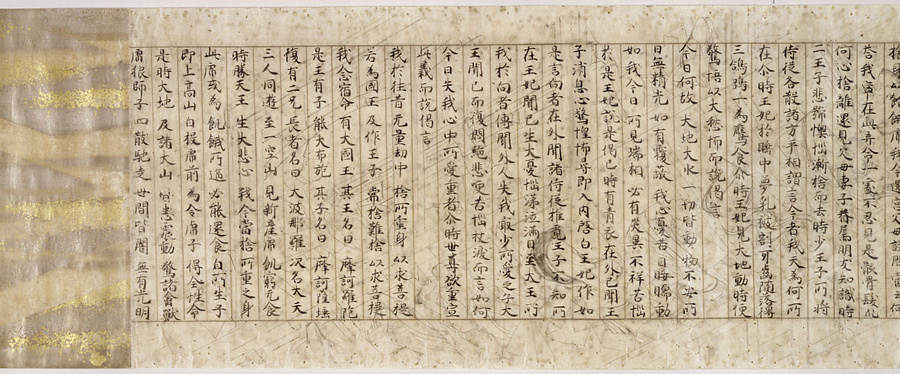 答我寧在此并命一處不忍見是骸骨髮爪
何心捨離還見父母妻子眷屬朋友知識時
二王子悲號懊惱漸捨而去時少王子所將
侍從各散諸方乎相謂言今者我天為何所
在尒時王妃於睡中夢乳被割牙齒墮落得
三鴿鶵一為鷹食尒時王妃見大地動時便
驚悟以大愁怖而說偈言
今日何故 大地大水 一切皆動 物不安所
日無精光 如有覆蔽 我心憂苦 目睫瞤動
如我今日 所見瑞相 必有災異 不祥苦惱
於是王妃說是偈已時有青衣在外已聞王
子消息心驚惶怖尋即入內啓白王妃作如
是言向者在外聞諸侍從推覓王子不知所
在王妃聞已生大憂惱涕泣滿目至大王所
我於向者傳聞外人失我最少所愛之子大
王聞已而復悶絕悲哽苦惱抆淚而言如何
今日失我心中所愛重者尒時世尊欲重宣
此義而說偈言
我於往昔 无量劫中 捨所重身 以求菩提
若為國王 及作王子 常捨難捨 以求菩提
我念宿命 有大國王 其王名曰 摩訶羅陀
是王有子 能大布施 其子名曰 摩訶薩埵
復有二兄 長者名曰 大波那羅 次名大天
三人同遊 至一空山 見新產虎 飢窮无食
時勝大王 生大悲心 我今當捨 所重之身
此虎或為 飢餓所逼 必能還食 自所生子
即上高山 自投虎前 為令虎子 得全性命
是時大地 及諸大山 皆悉震動 驚諸禽獸
虎狼師子 四散馳走 世間皆闇 無有光明